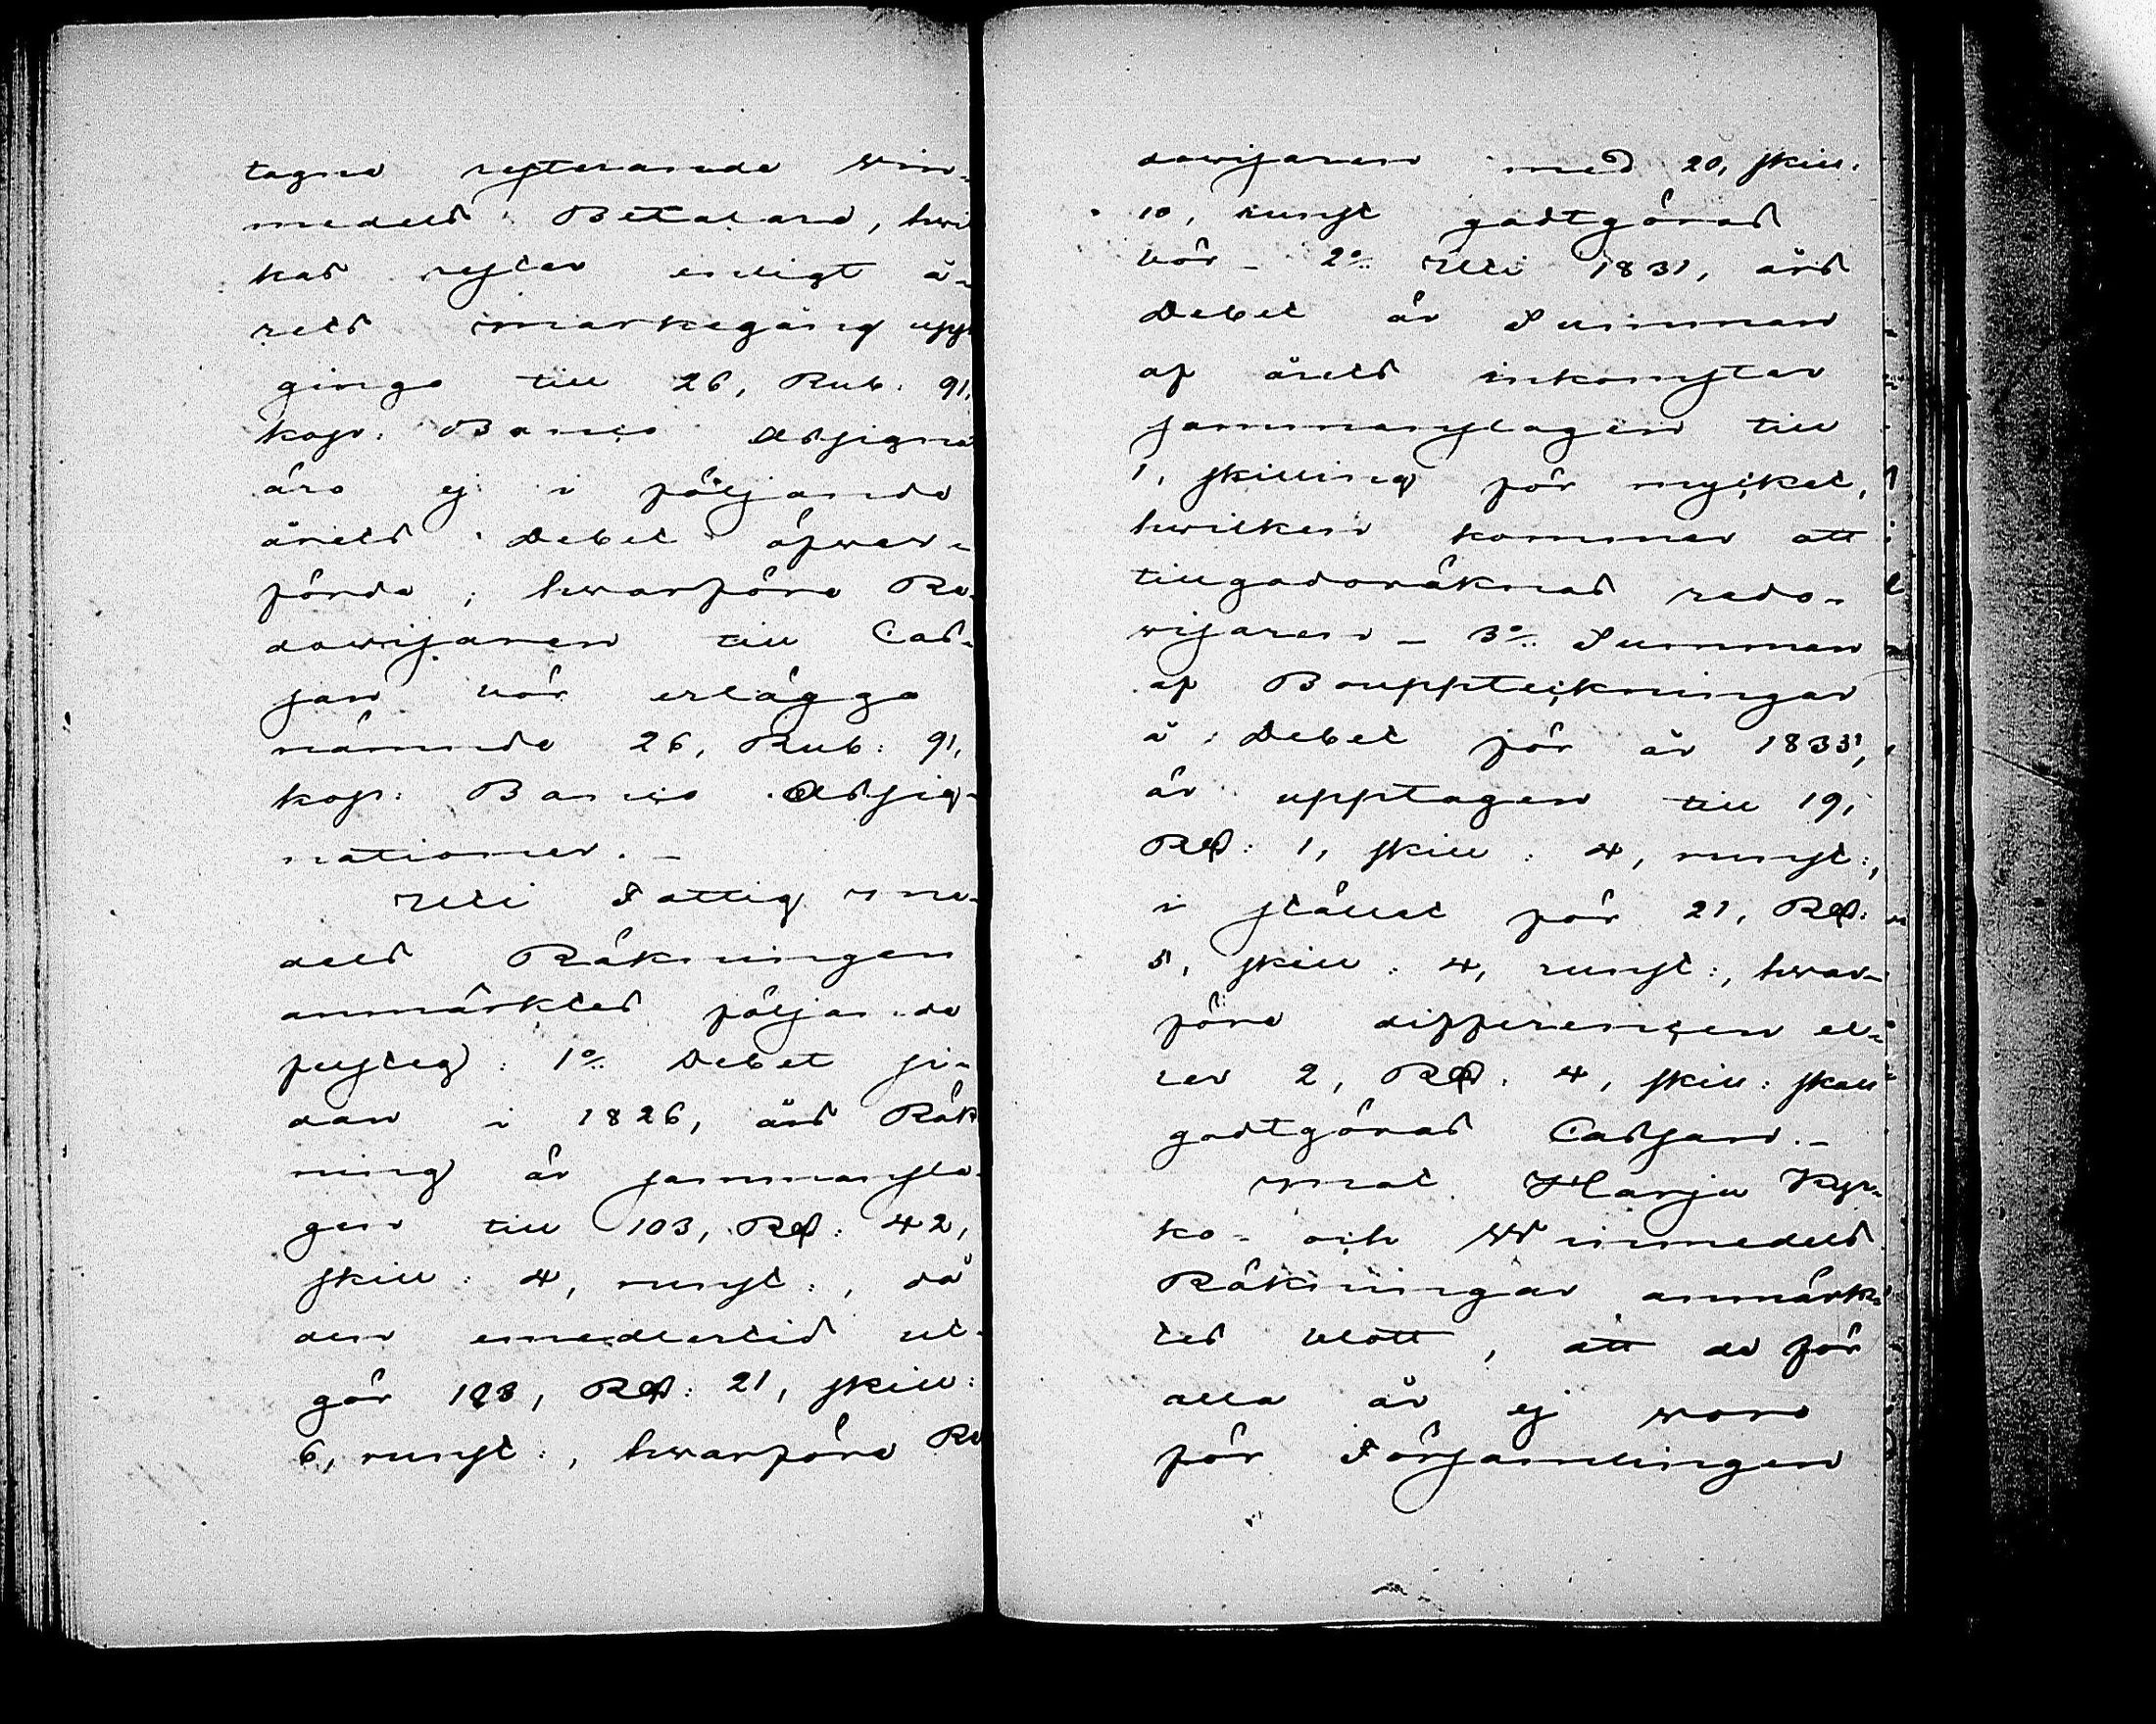 tagne resterande Win-
medels Betalare, hwil
kas rester enligt å-
rets markegång upp-
gingo till 26, Rub: 91,
kop: Banco Assigna
äro ej i följande
årets Debet öfwer-
förde; hwarföre Re-
dowisaren till Cas-
san bör erlägga
nämnde 26, Rub: 91,
kop: Banco Assig-
nationer. –
Uti Fattig me-
dels Räkningen
anmärktes följande
felsteg: 1o Debet si-
dan i 1826, års Räk
ning är sammansla-
gen till 103, Rd: 42,
skill: 4, runst:, då
den emedlertid ut-
gör 103, Rd: 21, skill:
6, runst:, hwarföre Re
dowisaren med 20, skill:
10, runst godtgöras
bör – 2o Uti 1831, års
Debet är Summan
af årets inkomster
sammanslagen till
1, skilling för mycket,
hwilken kommer att
tillgodoräknas redo-
wisaren – 3o Summan
af Bouppteckningar
i Debet för år 1833,
är upptagen till 19,
Rd: 1, skill: 4, runst:,
i stället för 21, Rd:
5, skill: 4, runst:, hwar-
före differencen el-
ler 2, Rd: 4, skill: skall
godtgöras Cassan. –
mot Harju Kyr-
ko- och Winmedels
Räkningar anmärk-
tes blott, att de för
alla år ej woro
för Församlingen